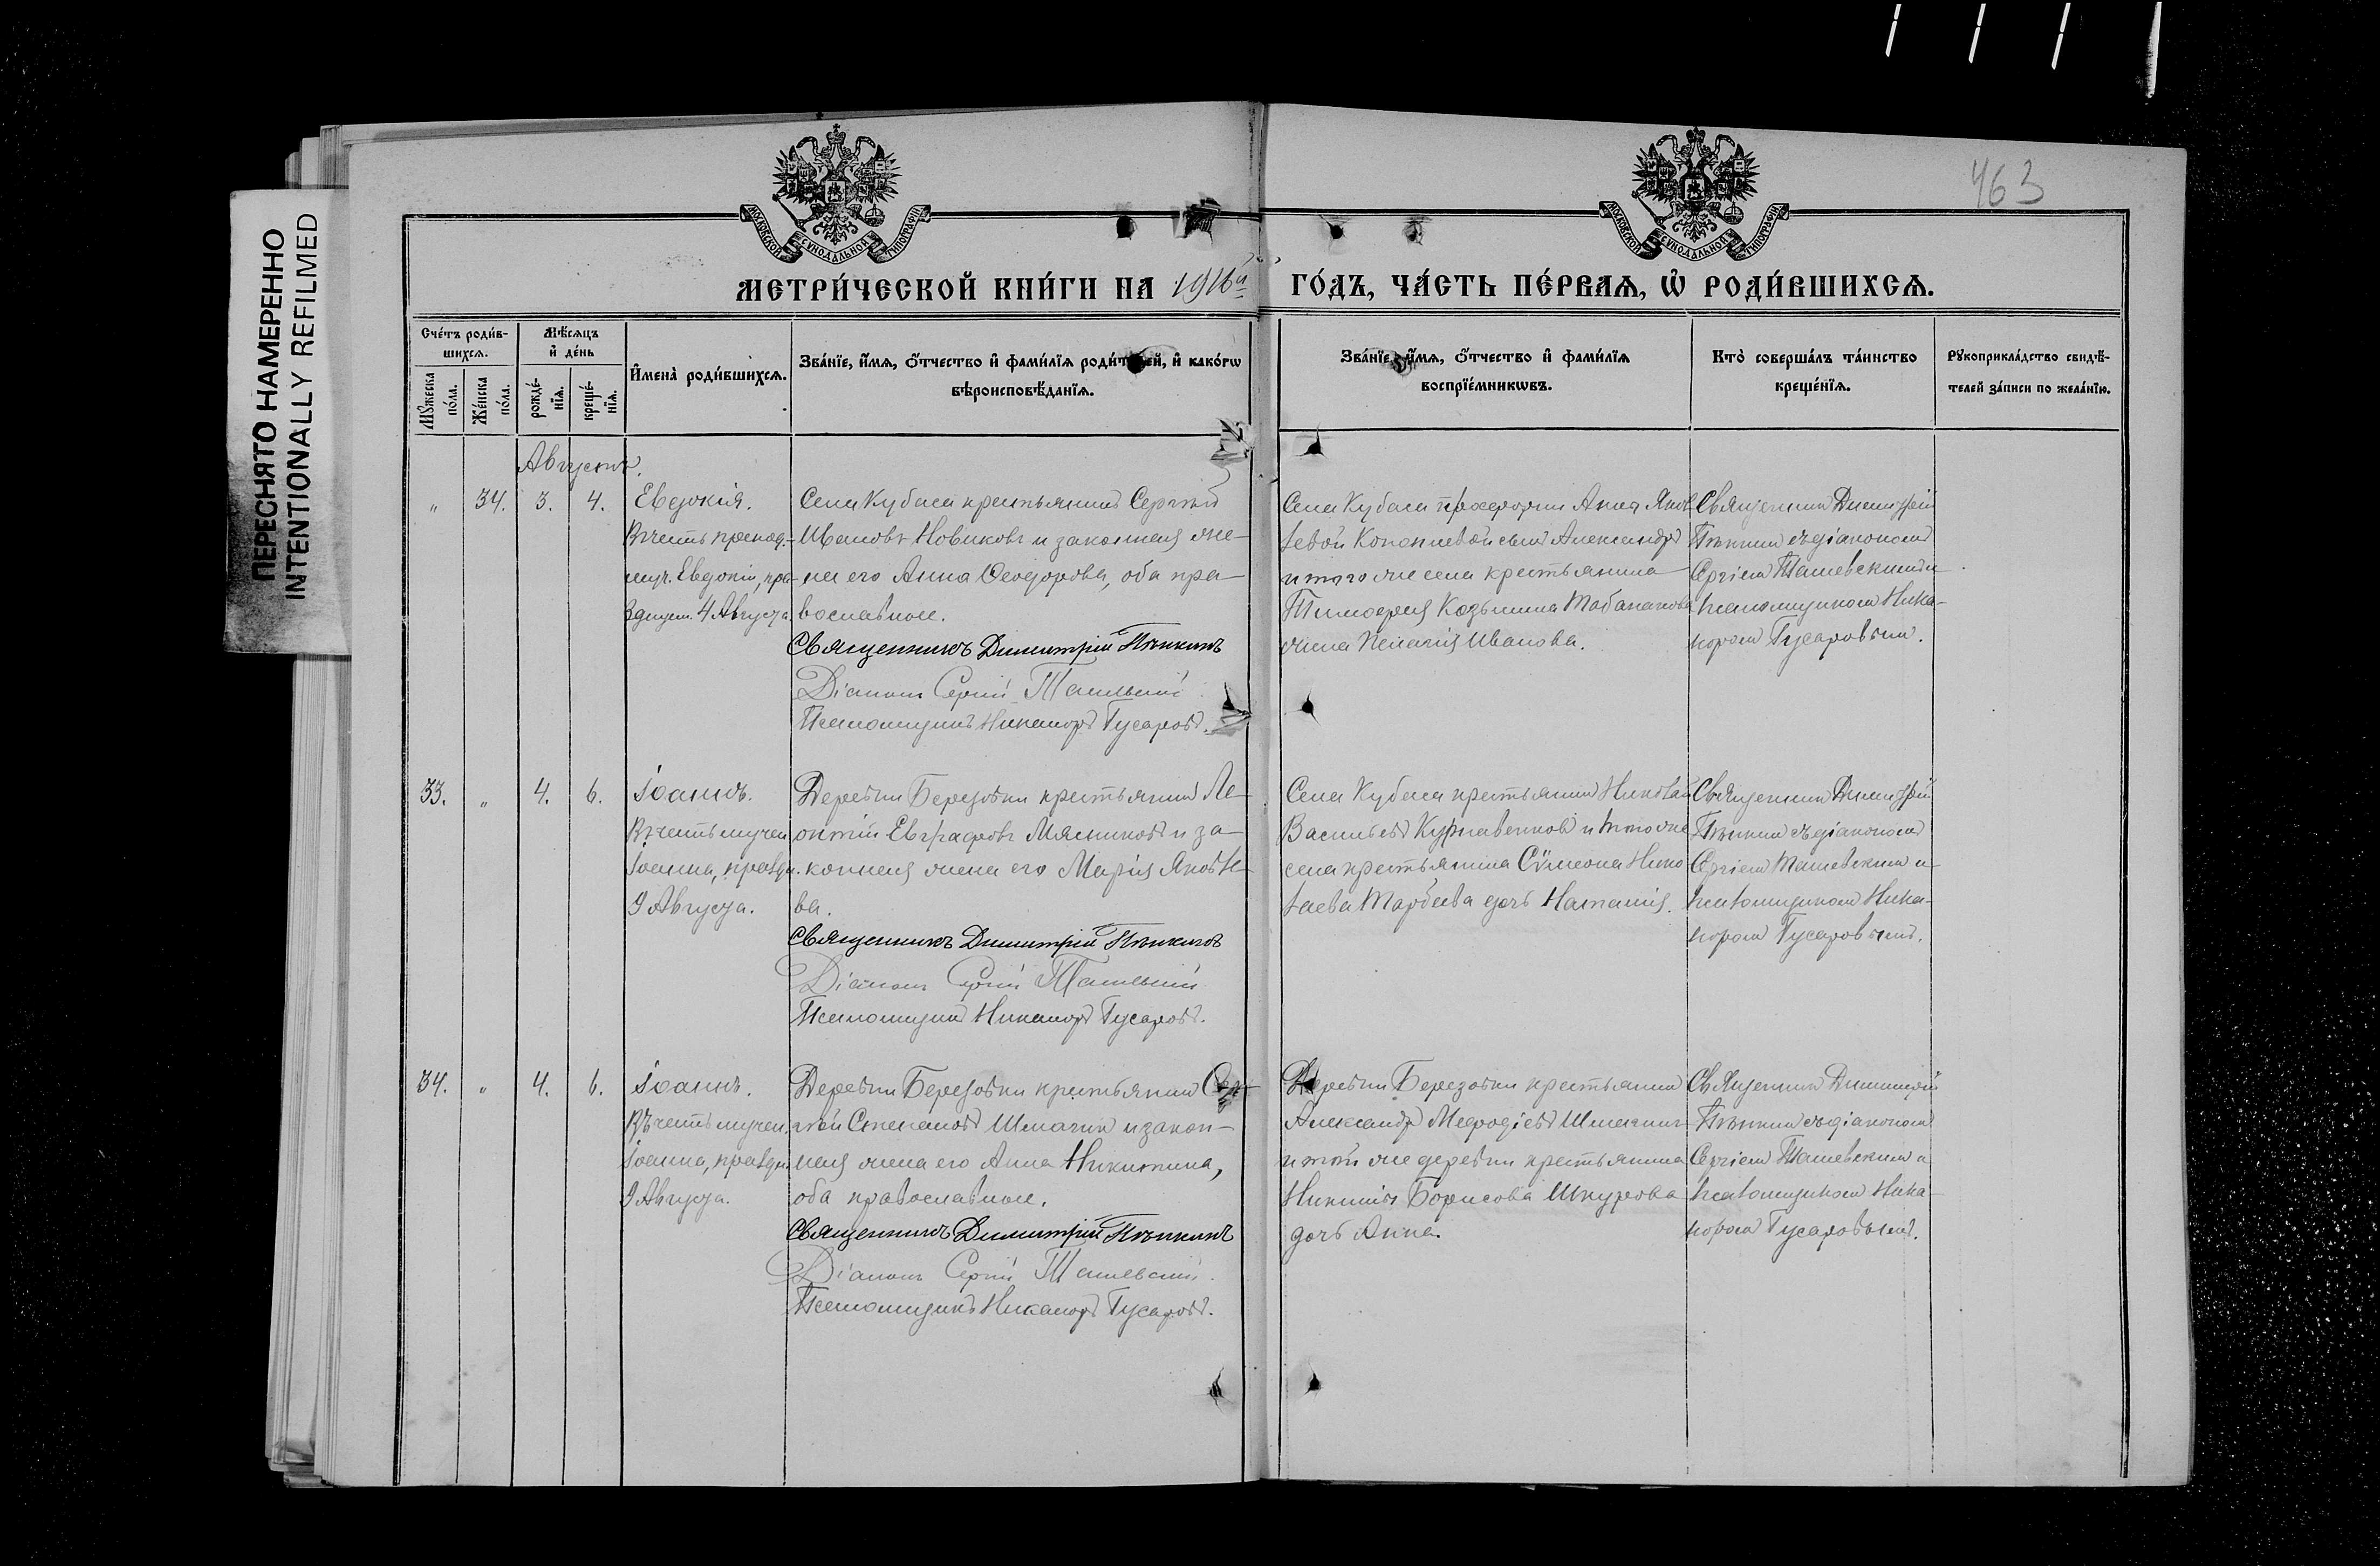 463
ПЕРЕСНЯТО НАМЕРЕННО
INTENTIONALLY REFILMED
МОСКОВСКОЙ СѴНОДАЛЬНОЙ ТИПОГРАФІИ
МОСКОВСКОЙ СѴНОДАЛЬНОЙ ТИПОГРАФІИ
МЕТРИ́ЧЕСКОЙ КНИ́ГИ НА 1916й ГО́ДЪ, ЧА́СТЬ ПЕ́РВАѦ, Ѡ҆ РОДИ́ВШИХСѦ.
Сче́тъ роди́в-
шихсѧ.
Мꙋ́жеска по́ла.
Же́нска по́ла.
Мѣ́сѧцъ
и҆ де́нь
рожде́-
нїѧ.
креще́-
нїѧ.
И҆мена̀ роди́вшихсѧ.
Зва́нїе, и҆́мѧ, ѻ҆́тчество и҆ фами́лїѧ роди́телей, и҆ како́гѡ
вѣроисповѣ́данїѧ.
Зва́нїе, и҆́мѧ, ѻ҆́тчество и҆ фами́лїѧ
воспрїе́мникѡвъ.
Кто̀ соверша́лъ та́инство
креще́нїѧ.
Рꙋкоприкла́дство свидѣ́-
телей за́писи по жела́нїю.
Августъ.
„ 34. 3. 4. Евдокія.
Въ честь препод.-
муч. Евдокіи, пра-
зднуем. 4 Августа.
Села Кубаса крестьянинъ Сергѣй
Ивановъ Новиковъ и законная же-
на его Анна Ѳеодорова, оба пра-
вославные.
Священникъ Димитрій Пѣнкинъ
Діаконъ Сергій Ташевскій
Псаломщикъ Никаноръ Гусаровъ.
Села Кубаса Анна Яков
левой сынъ Александръ
и того же села крестьянина
Тимоѳея Козьмина
жена Пелагія Иванова.
Священникъ Димитрій
Пѣнкинъ съ діакономъ
Сергіемъ Ташевскимъ и
псаломщикомъ Ника-
норомъ Гусаровымъ.
33. „ 4. 6. Іоаннъ.
Въ честь мучен.
Іоанна, праздн.
9 Августа.
Деревни Березовки крестьянинъ Ле-
онтій Евграфовъ Мясниковъ и за-
конная жена его Марія Яковле-
ва.
Священникъ Димитрій Пѣнкинъ
Діаконъ Сергій Ташевскій
Псаломщикъ Никаноръ Гусаровъ.
Села Кубаса крестьянинъ Николай
Васильевъ и того же
села крестьянина Сѵмеона Нико
лаева дочь Наталія.
Священникъ Димитрій
Пѣнкинъ съ діакономъ
Сергіемъ Ташевскимъ и
псаломщикомъ Ника-
норомъ Гусаровымъ.
34. „ 4. 6. Іоаннъ.
Въ честь мучен.
Іоанна, праздн.
9 Августа.
Деревни Березовки крестьянинъ Сер-
гѣй Степановъ Шмагин и закон-
ная жена его Анна Никитина,
оба православные.
Священникъ Димитрій Пѣнкинъ
Діаконъ Сергій Ташевскій.
Псаломщикъ Никаноръ Гусаровъ.
Деревни Березовки крестьянинъ
Александръ Меѳодіевъ Шмагинъ
и той же деревни крестьянина
Никиты Борисова Шкурова
дочь Анна.
Священникъ Димитрій
Пѣнкинъ съ діакономъ
Сергіемъ Ташевскимъ и
псаломщикомъ Ника-
норомъ Гусаровымъ.